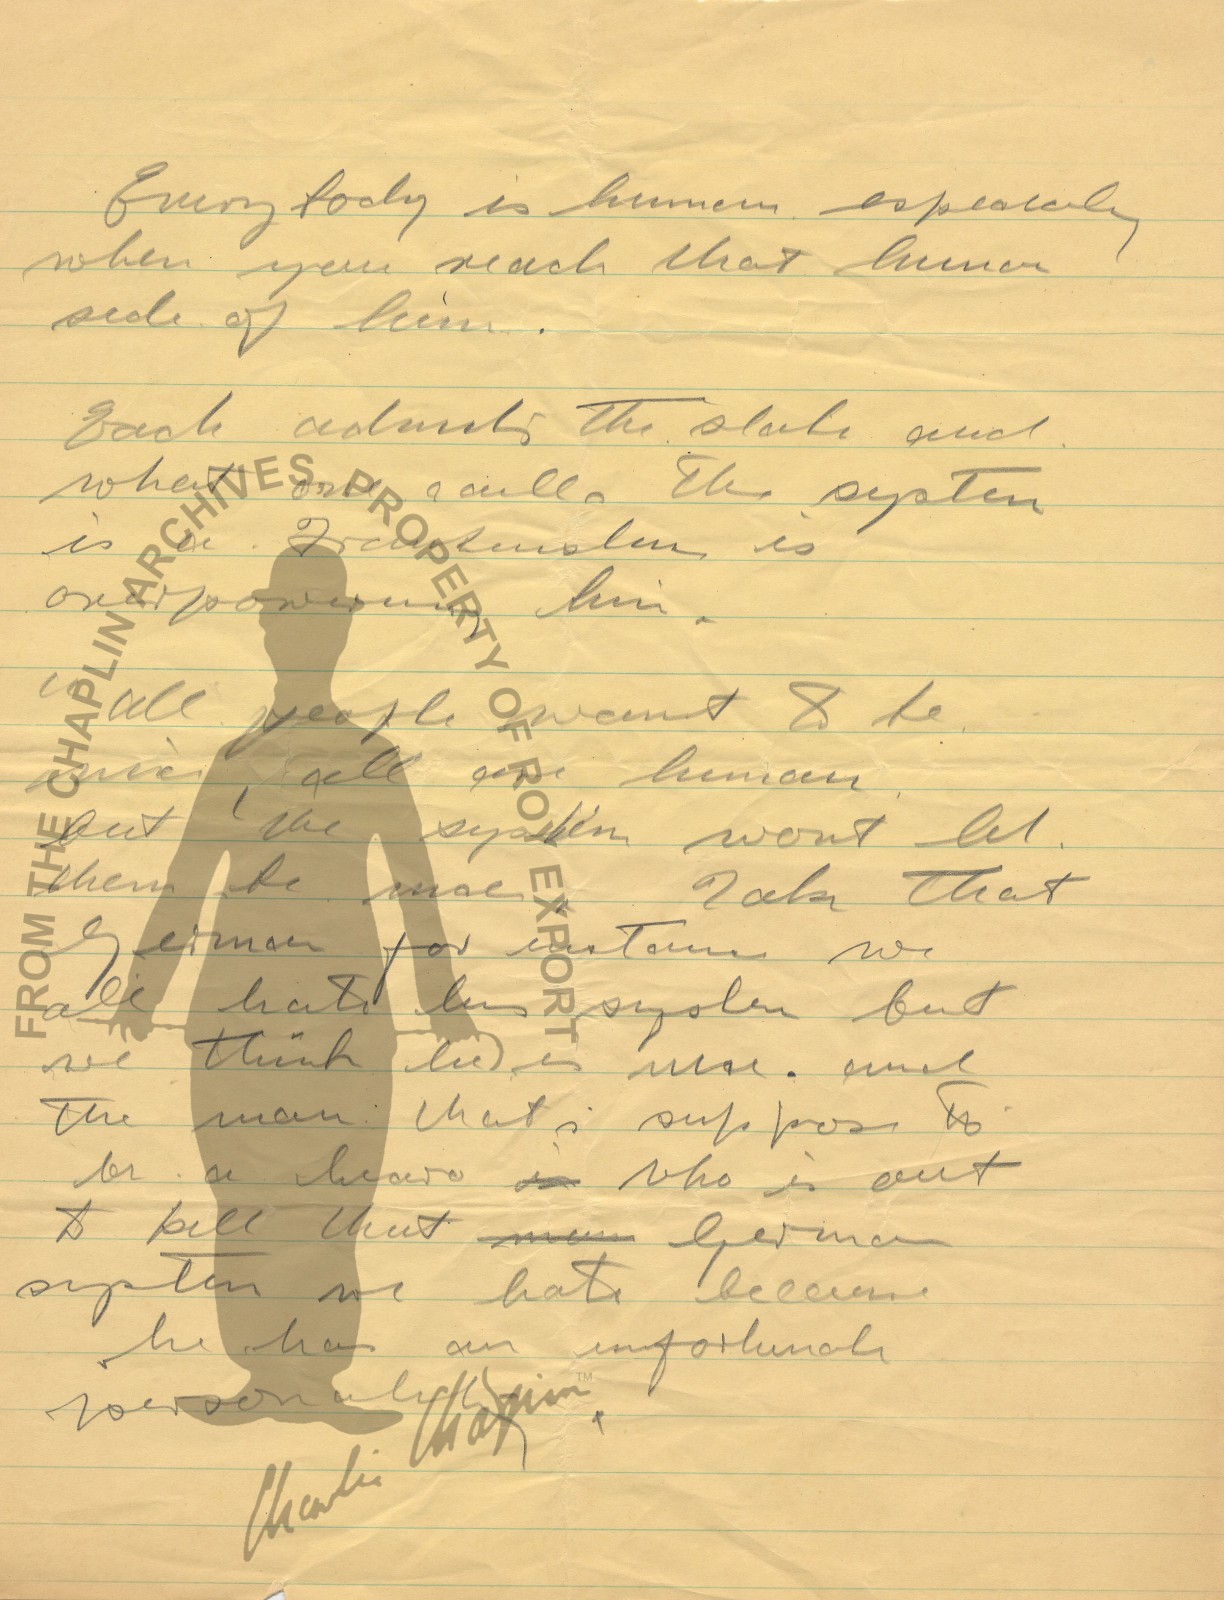 Everybody is human especialy
when you reach that human
side of him.
Each admits the state and
what one calls the system
is a Frankenstein is
overpowering him.
"all people want to be
nice, all are human
but the system wont let
them be nice. Take that
German for instance we
all hate his system but
we think he is nice. and
the man that's suppose to
be a hearo is who is out
to kill that man German
system we hate because
he has an unfortunate
personality.
FROM THE CHAPLIN ARCHIVES. PROPERTY OF ROY EXPORT
Charlie Chaplin™